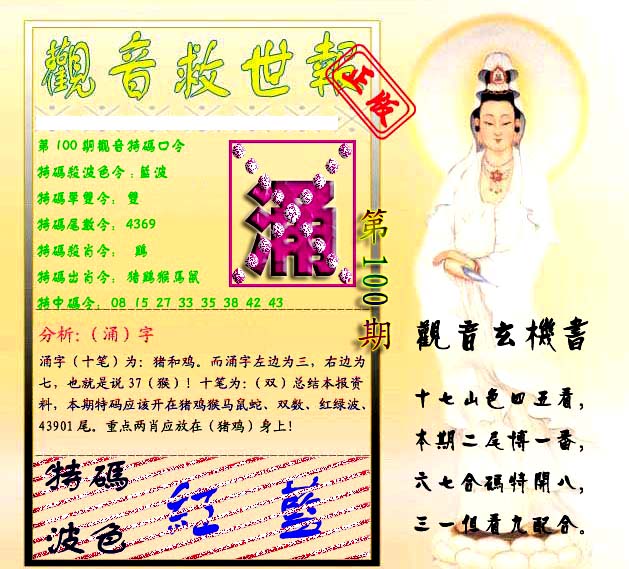 觀音救世報
正版
第100期觀音特碼口令
特碼殺波色令:藍波
特碼單雙令: 雙
特碼尾數令: 4369
特碼殺肖令: 鷄
特碼出肖令: 猪鷄猴馬鼠
特中碼令: 08 15 27 33 35 38 42 43
涌
第100期
分析:(涌)字
涌字(十笔)为:猪和鸡。而涌字左边为三,右边为
七,也就是说37(猴)!十笔为:(双)总结本报资
料,本期特码应该开在猪鸡猴马鼠蛇、双数、红绿波、
43901尾。重点两肖应放在(猪鸡)身上!
特碼
波色
紅 藍
觀音玄機書
十七山色四五看,
本期二尾博一番,
六七合碼特開八,
三一但看九配合。